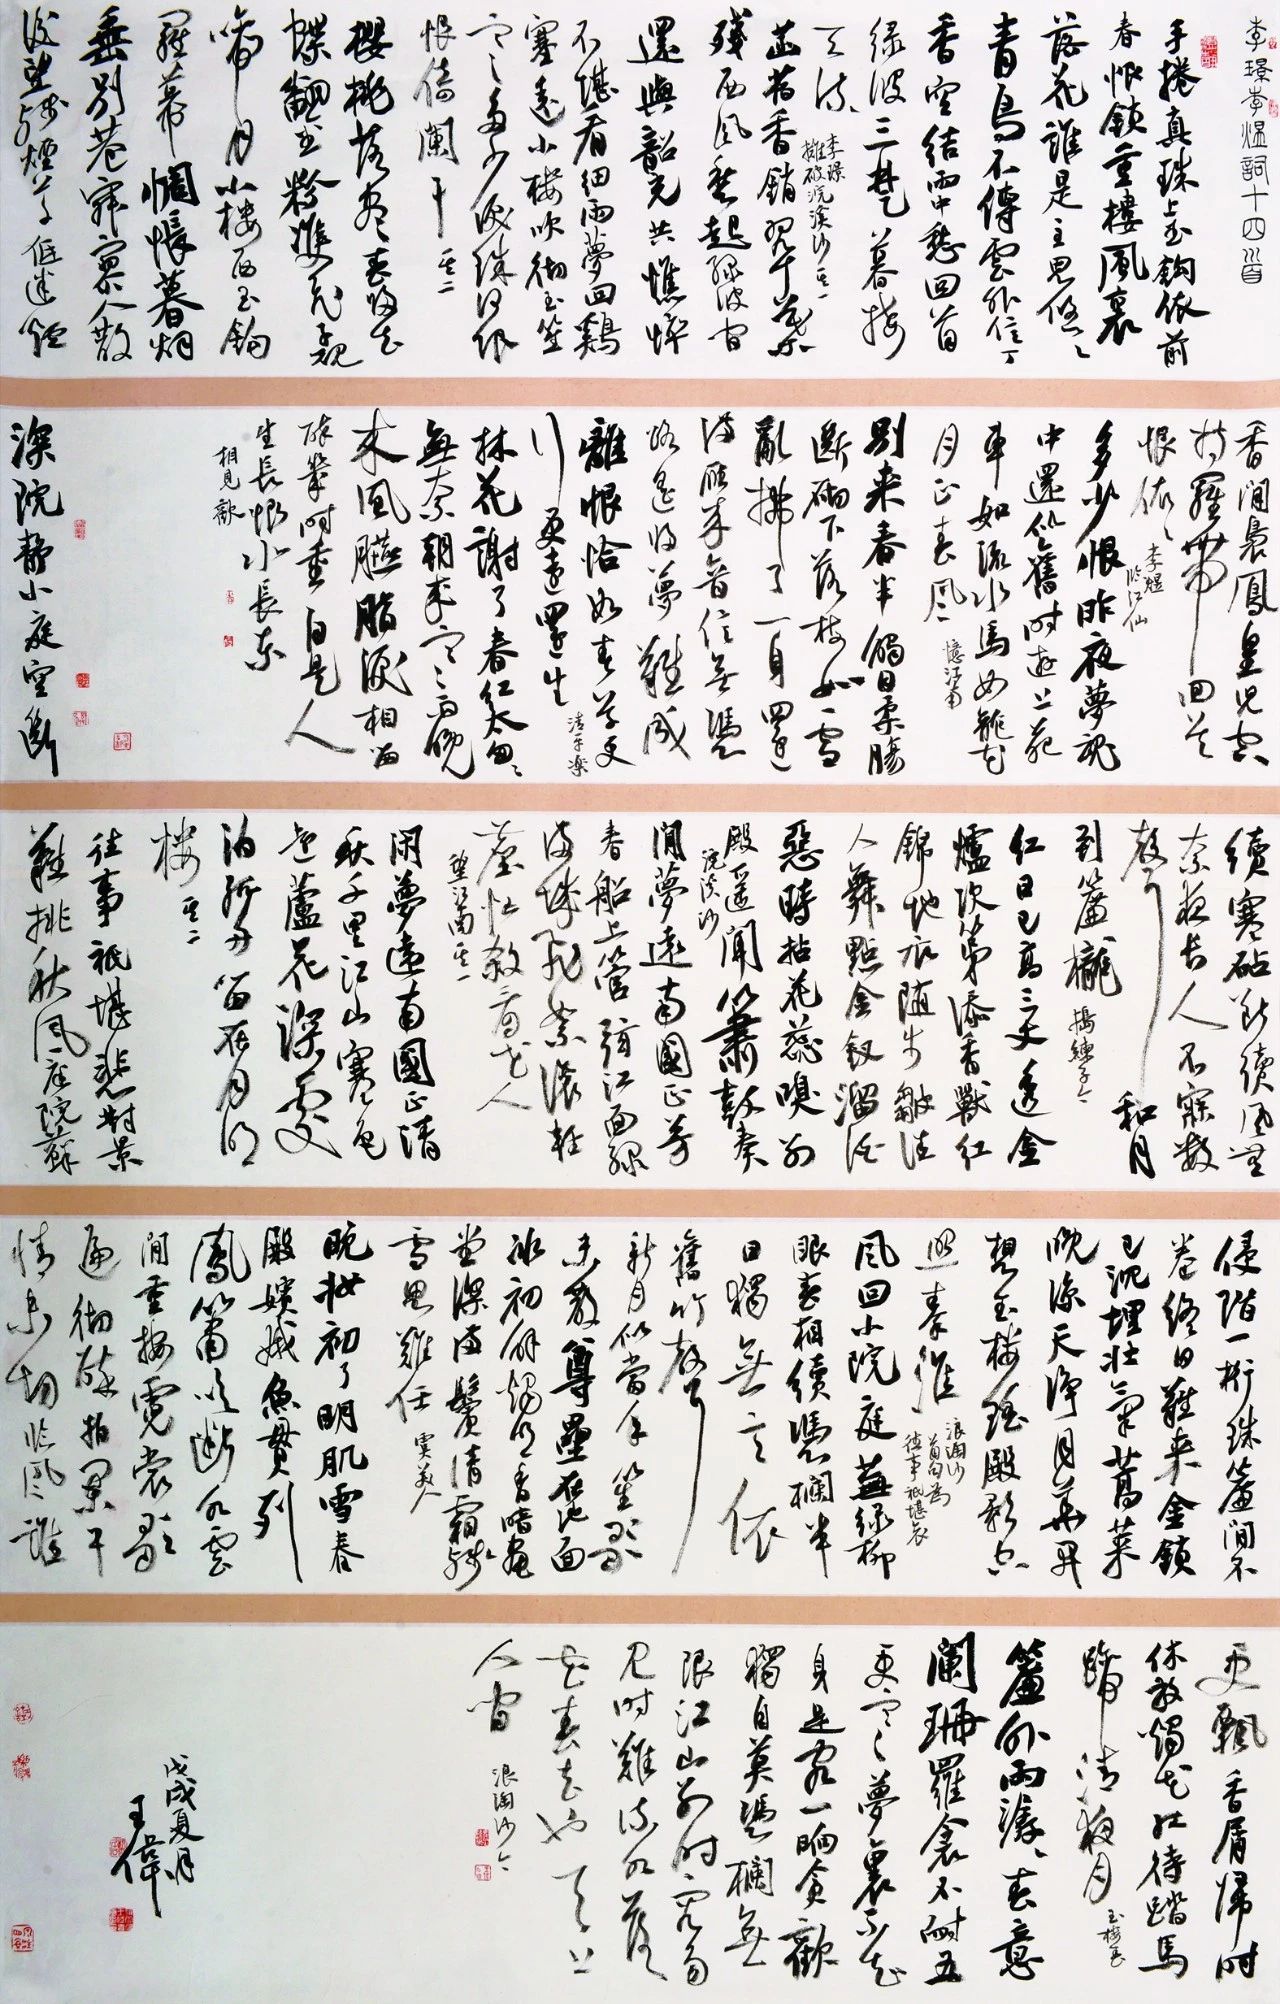 李璟李煜詞十四首
手捲真珠上玉鉤依前
春恨鎖重樓風裏
落花誰是主思悠々
青鳥不傳雲外信丁
香空結雨中愁回首
綠波三楚暮接
天流
李璟
攤破浣溪沙其一
菡萏香銷翠葉
殘西風愁起綠波間
還與韶光共憔悴
不堪看細雨夢回鷄
塞遠小樓吹徹玉笙
寒多少淚珠何限
恨倚闌干
其二
櫻桃落盡春歸去
蝶翻金粉雙飛子規
啼月小樓西玉鉤
羅幕惆悵暮烟
垂別巷寂寥人散
後望殘煙草低迷爐
香閒裊鳳凰兒空
持羅帶回首
恨依々
李煜
臨江仙
多少恨昨夜夢魂
中還似舊時游上苑
車如流水馬如龍花
月正春風
憶江南
別來春半觸目柔腸
斷砌下落梅如雪
亂拂了一身還
滿雁來音信無憑
路遙歸夢難成
離恨恰如春草更
行更遠還生
清平樂
林花謝了春紅太匆々
無奈朝來寒雨晚
來風胭脂淚相留
醉幾時重自是人
生長恨水長東
相見歡
深院靜小庭空斷
續寒砧斷續風無
奈夜長人不寐數
聲和月
到簾櫳
搗練子令
紅日已高三丈透金
爐次第添香獸紅
錦地衣隨步皺佳
人舞點金釵溜酒
惡時拈花蕊嗅別
殿遙聞簫鼓奏
浣溪沙
閒夢遠南國正芳
春船上管弦江面綠
滿城飛絮滾輕
塵忙殺看花人
望江南其一
閑夢遠南國正清
秋千里江山寒色
遠蘆花深處
泊孤舟笛在月明
樓
其二
往事祇堪悲對景
難排秋風庭院蘚
侵階一桁珠簾閒不
卷終日難來金鎖
已沈埋壯氣蒿萊
晚涼天淨月華開
想玉樓瑤殿影空
照秦淮
浪淘沙
首句為
往事祇堪哀
風回小院庭蕪綠柳
眼春相續憑欄半
日獨無言依
舊竹聲
新月似當年笙歌
未散尊罍在池面
冰初解燭明香暗畫
堂深滿鬢清霜殘
雪思難任
虞美人
晚妝初了明肌雪春
殿嬪娥魚貫列
鳳簫吹斷水雲
閒重按霓裳歌
遍徹醉拍闌干
情未切臨風誰
更飄香屑歸時
休放燭花紅待踏馬
蹄清夜月
玉樓春
簾外雨潺々春意
闌珊羅衾不耐五
更寒夢裏不知
身是客一晌貪歡
獨自莫憑欄無
限江山別時容易
見時難流水落
花春去也天上
人間
浪淘沙令
戊戌夏月
王偉